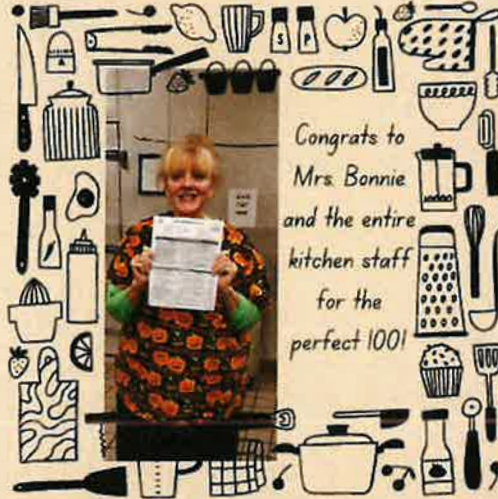 S P
Congrats to
Mrs. Bonnie
and the entire
kitchen staff
for the
perfect 100!